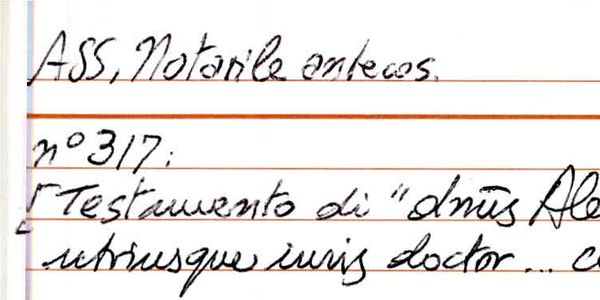 ASS, Notarile antecos.
n° 317:
[Testamento di "dnūs Ale
utriusque iuris doctor... c